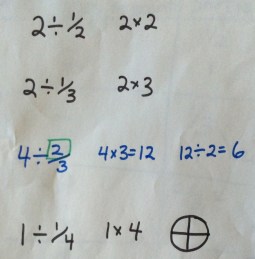 2÷1/2 2×2
2÷1/3 2×3
4÷2/3 4×3=12 12÷2=6
1÷1/4 1×4